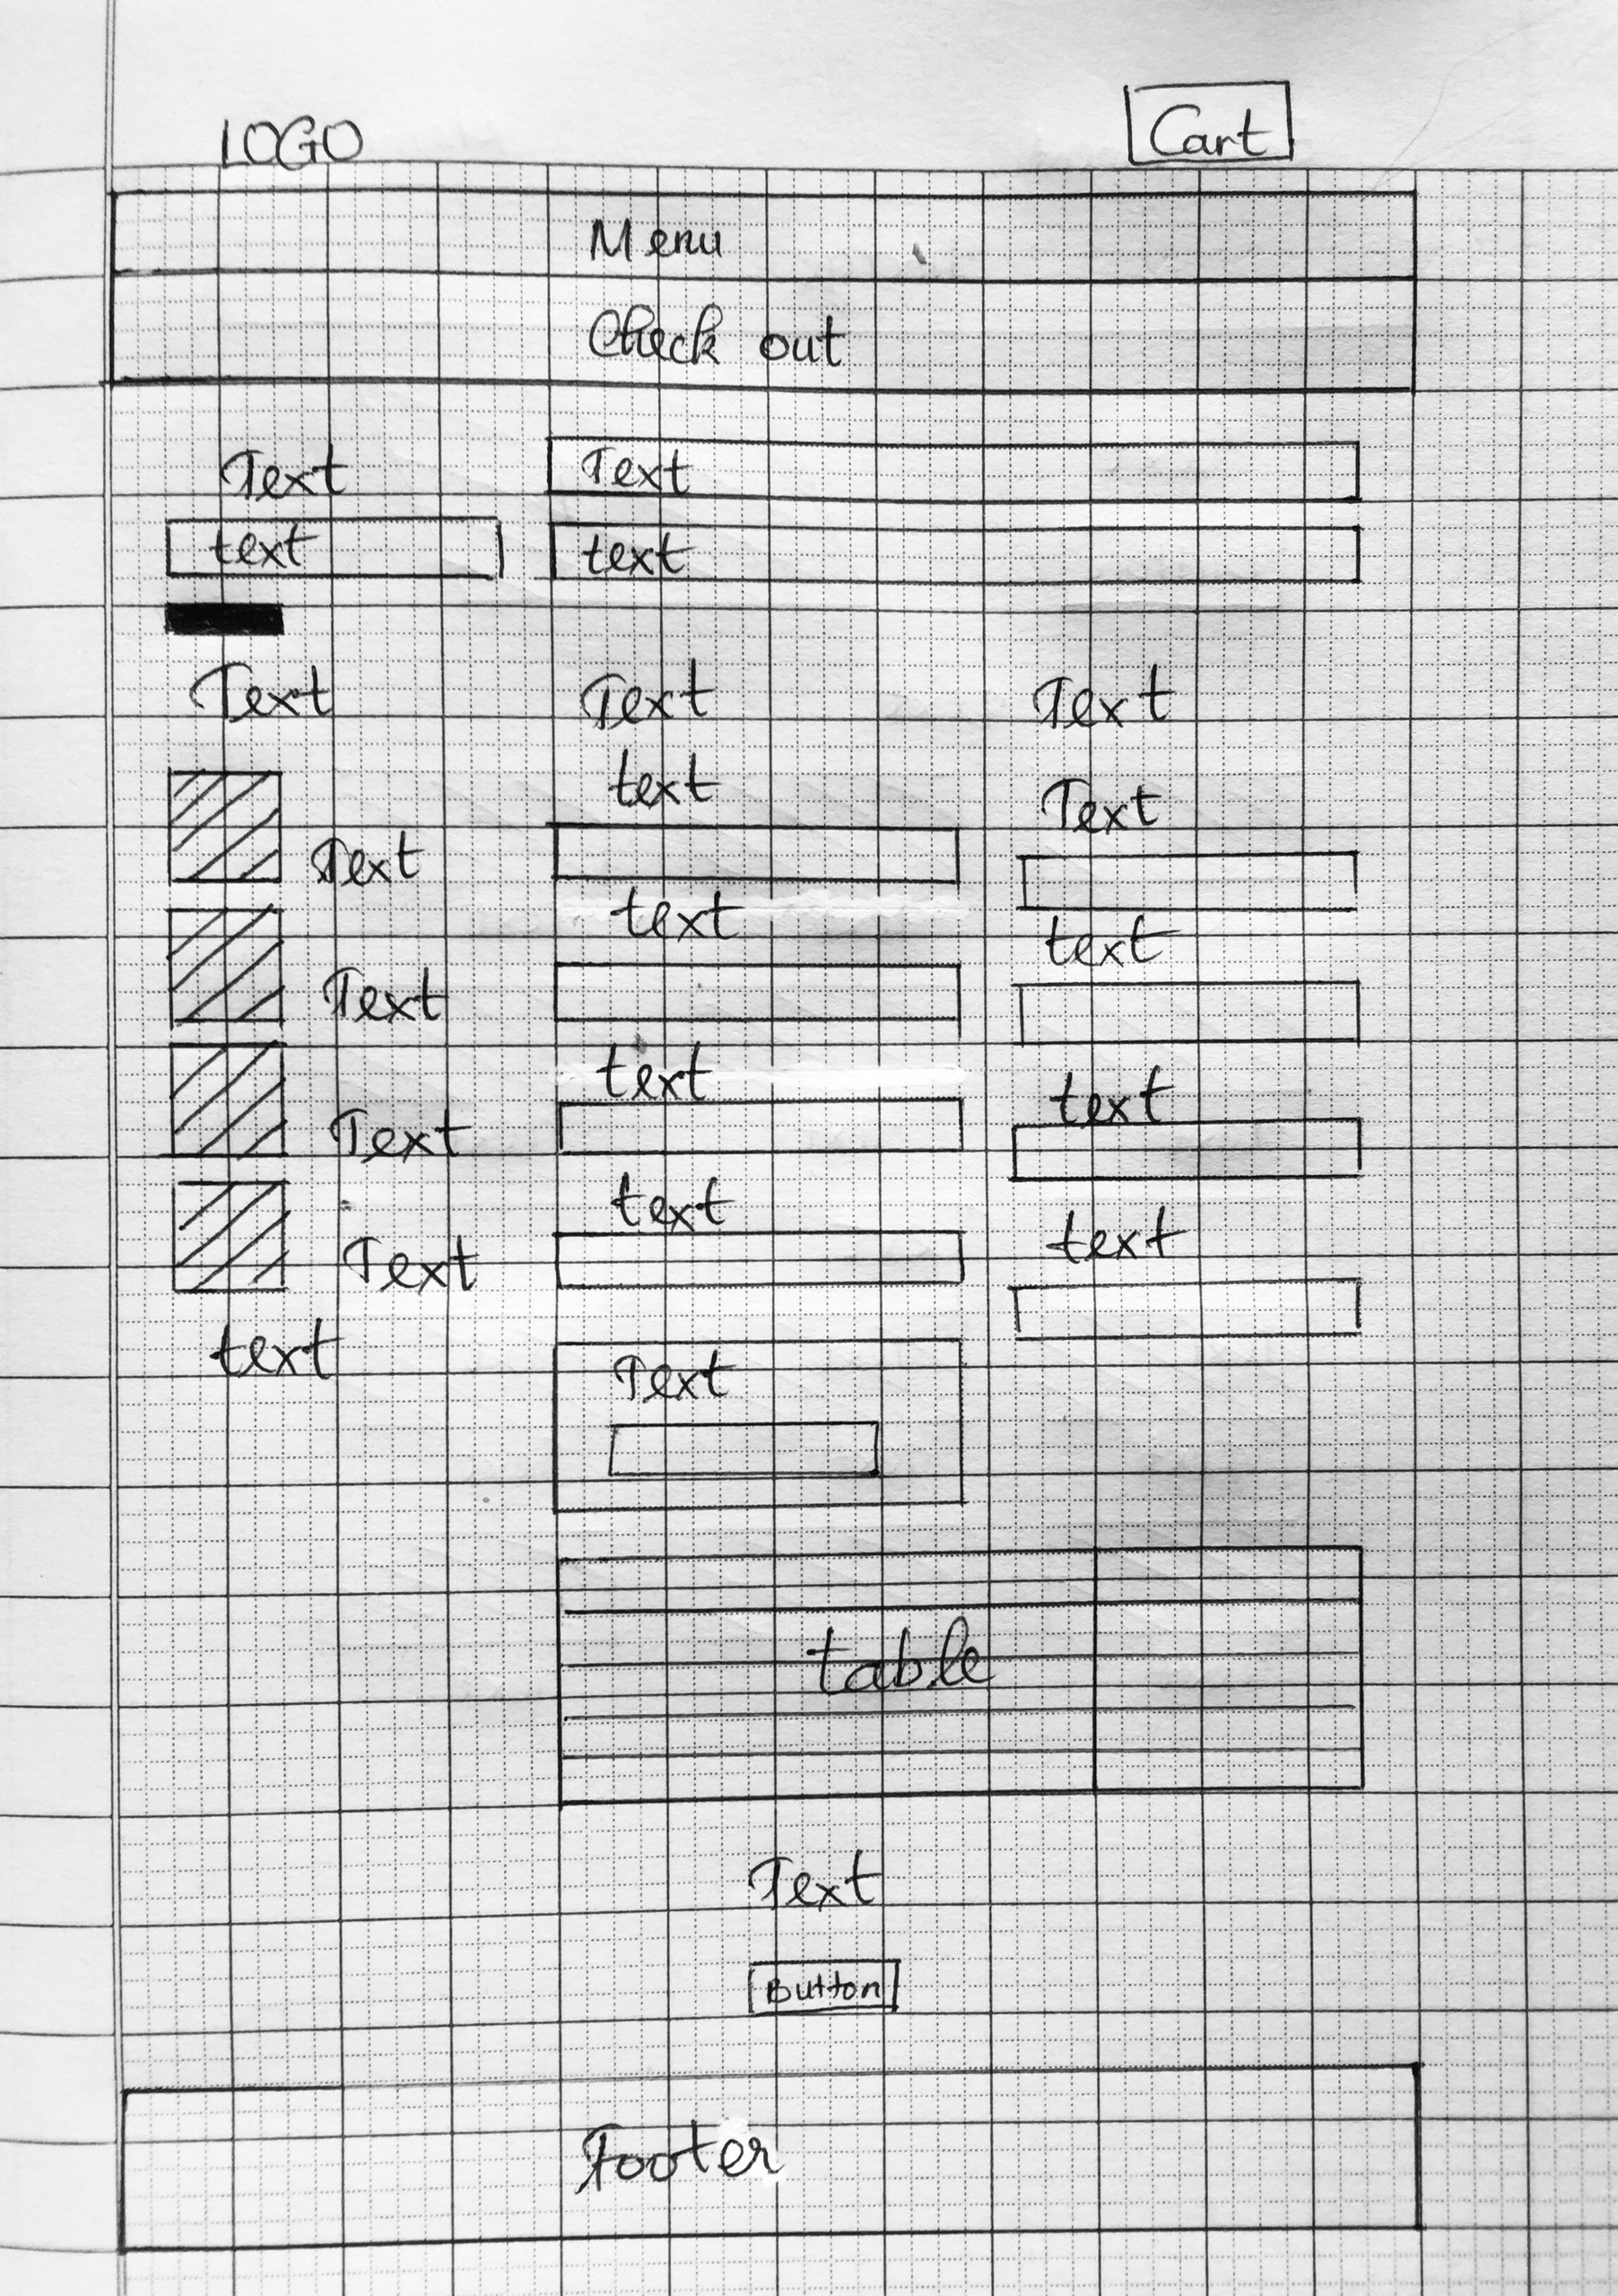 LOGO
Cart
Menu
Check out
Text
Text
text
text
Text
Text
Text
text
Text
Text
text
text
Text
text
text
Text
text
text
Text
text
Text
table
Text
Button
Footer